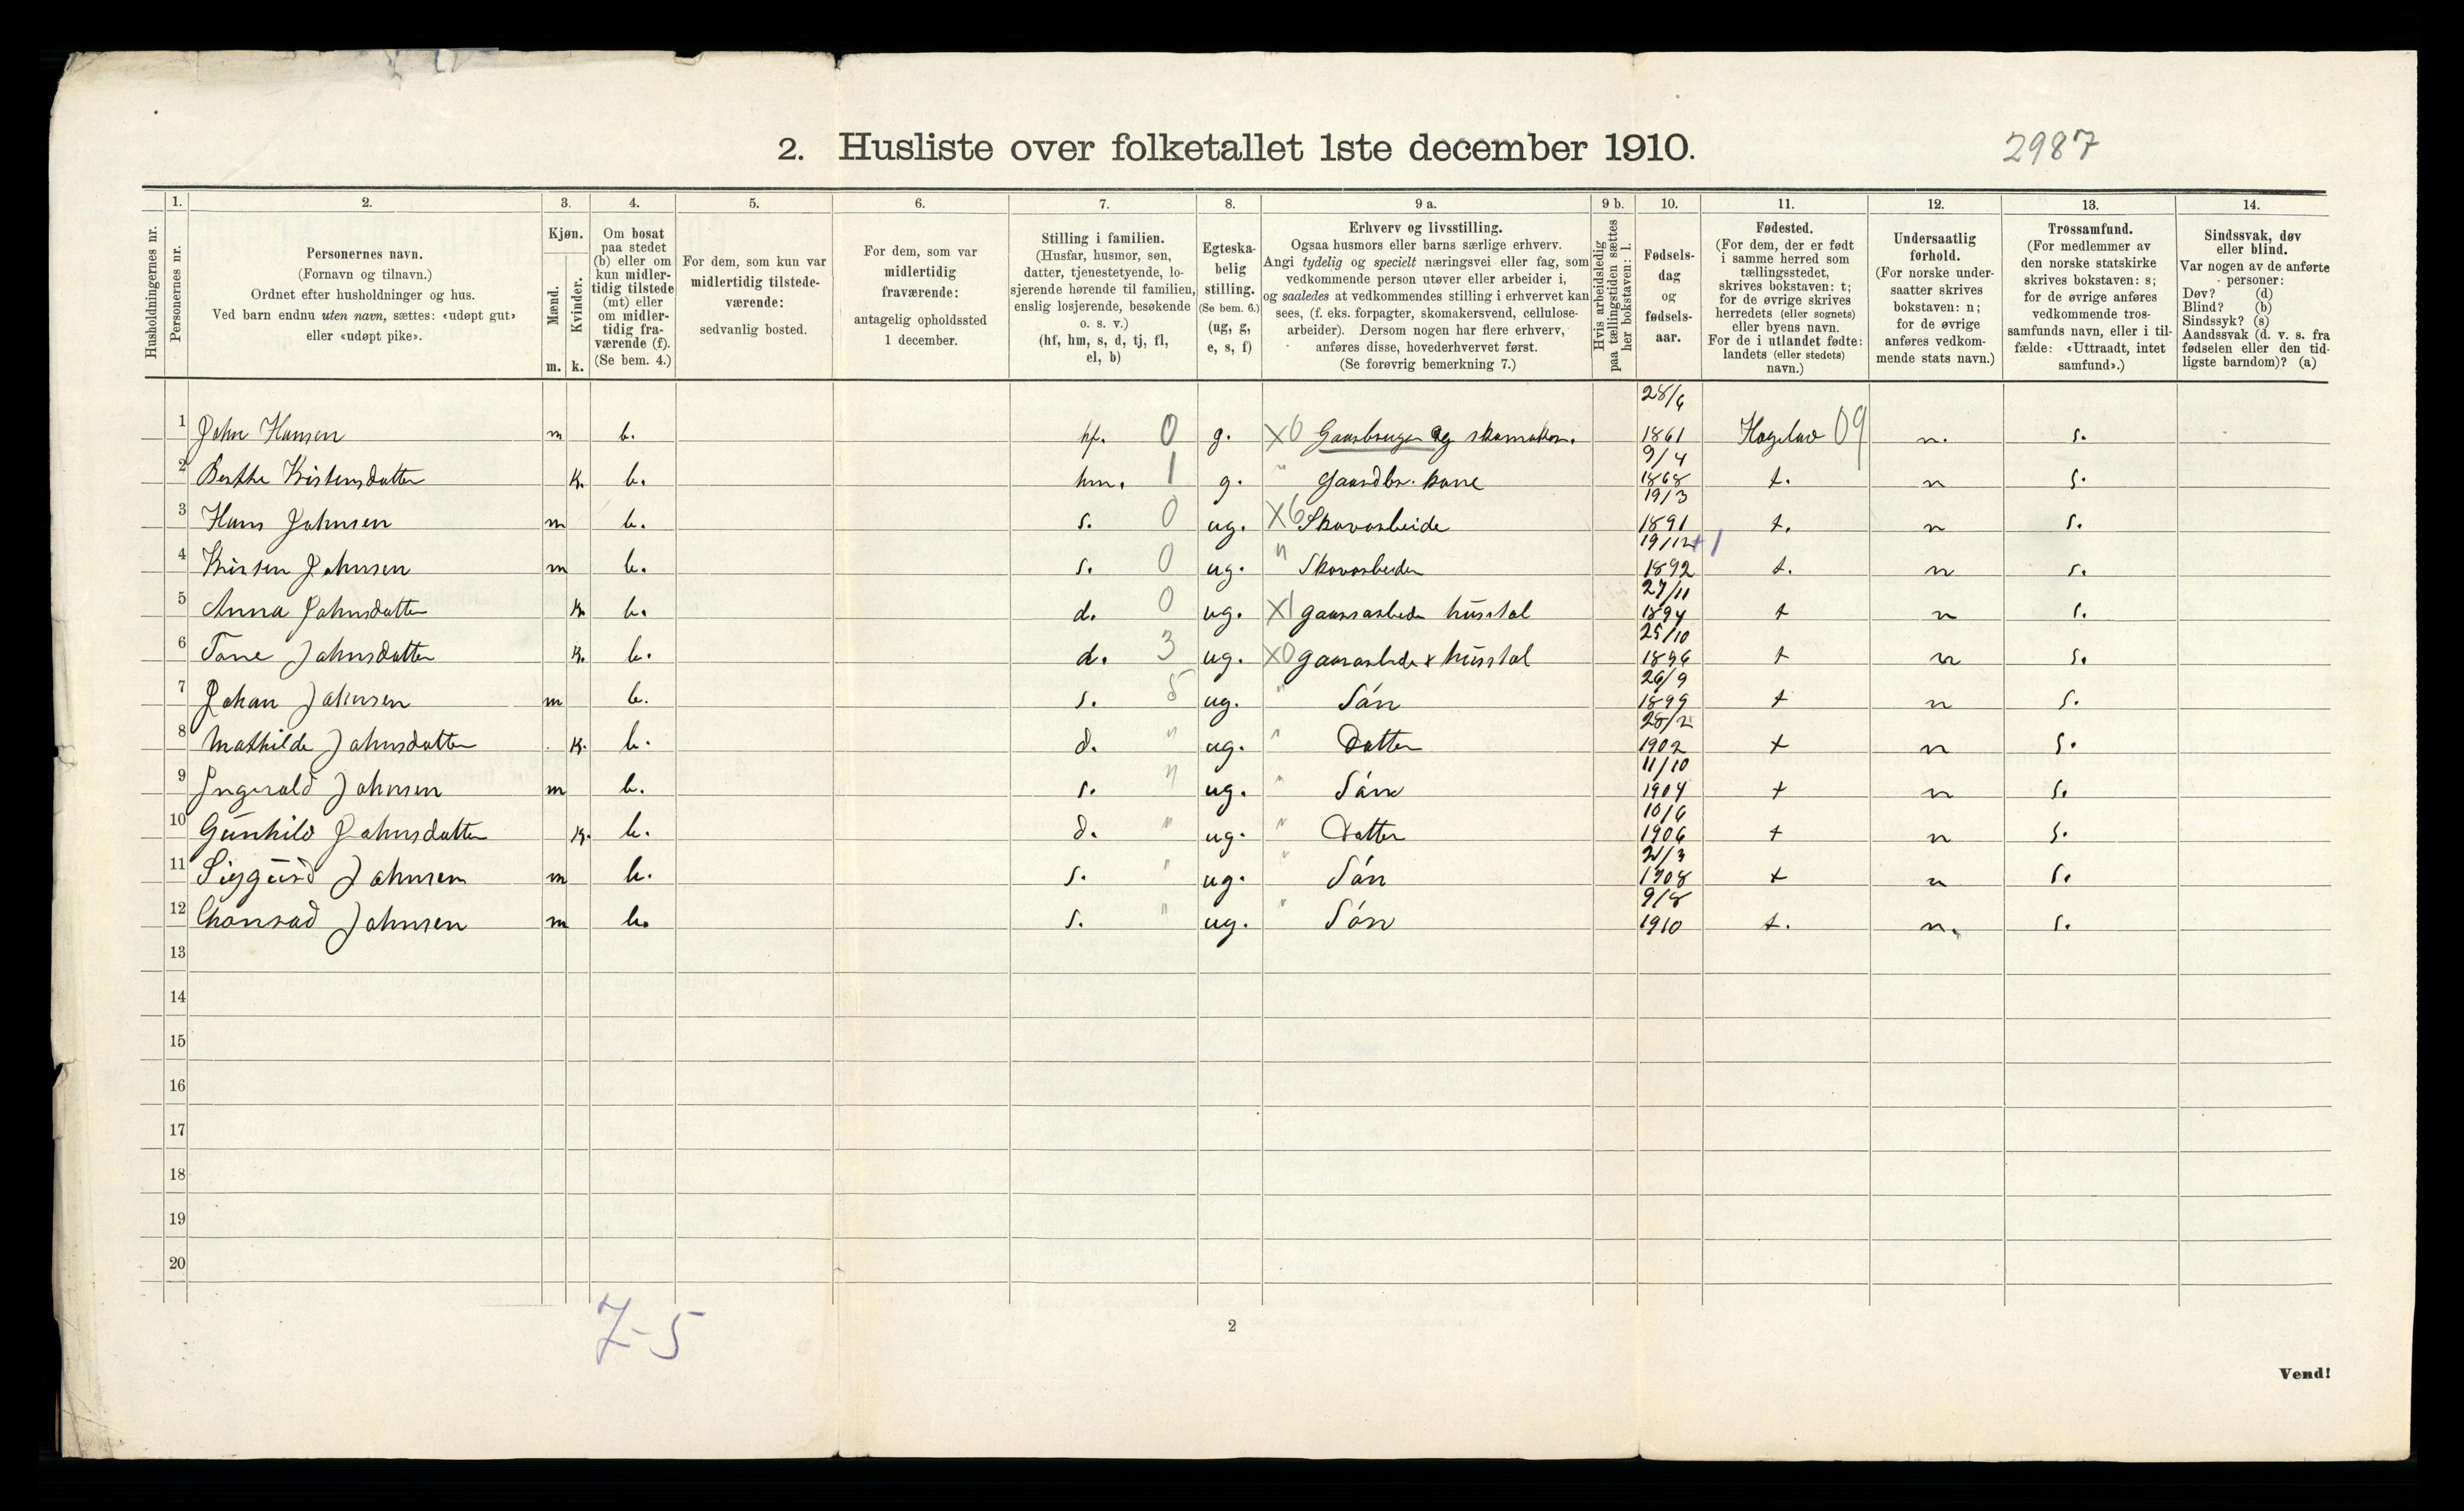 2. Husliste over folketallet 1ste december 1910.
2987
Husholdningernes nr.
1.
Personernes nr.
2.
Personernes navn.
(Fornavn og tilnavn.)
Ordnet efter husholdninger og hus.
Ved barn endnu uten navn, sættes: «udøpt gut»
eller «udøpt pike».
3.
Kjøn.
Mænd.
Kvinder.
m. k.
4.
Om bosat
paa stedet
(b) eller om
kun midler-
tidig tilstede
(mt) eller
om midler-
tidig fra-
værende (f).
(Se bem. 4.)
5.
For dem, som kun var
midlertidig tilstede-
værende:
sedvanlig bosted.
6.
For dem, som var
midlertidig
fraværende:
antagelig opholdssted
1 december.
7.
Stilling i familien.
(Husfar, husmor, søn,
datter, tjenestetyende, lo-
sjerende hørende til familien,
enslig losjerende, besøkende
o. s. v.)
(hf, hm, s, d, tj, fl,
el, b)
8.
Egteska-
belig
stilling.
(Se bem. 6.)
(ug, g,
e, s, f)
9 a.
Erhverv og livsstilling.
Ogsaa husmors eller barns særlige erhverv.
Angi tydelig og specielt næringsvei eller fag, som
vedkommende person utøver eller arbeider i,
og saaledes at vedkommendes stilling i erhvervet kan
sees, (f. eks. forpagter, skomakersvend, cellulose-
arbeider). Dersom nogen har flere erhverv,
anføres disse, hovederhvervet først.
(Se forøvrig bemerkning 7.)
9 b.
Hvis arbeidsledig
paa tællingstiden sættes
her bokstaven: l.
10.
Fødsels-
dag
og
fødsels-
aar.
11.
Fødested.
(For dem, der er født
i samme herred som
tællingsstedet,
skrives bokstaven: t;
for de øvrige skrives
herredets (eller sognets)
eller byens navn.
For de i utlandet fødte:
landets (eller stedets)
navn.)
12.
Undersaatlig
forhold.
(For norske under-
saatter skrives
bokstaven: n;
for de øvrige
anføres vedkom-
mende stats navn.)
13.
Trossamfund.
(For medlemmer av
den norske statskirke
skrives bokstaven: s;
for de øvrige anføres
vedkommende tros-
samfunds navn, eller i til-
fælde: «Uttraadt, intet
samfund».)
14.
Sindssvak, døv
eller blind.
Var nogen av de anførte
personer:
Døv? (d)
Blind? (b)
Sindssyk? (s)
Aandssvak (d. v. s. fra
fødselen eller den tid-
ligste barndom)? (a)
1 John Hansen m b. hf. 0 g. X0 Gaarbruger og skomaker. 28/6 1861 09 n. s.
2 Berthe Kristensdatter k. b. hm. 1 g. " Gaardbr. kone 9/4 1868 t. n s.
3 Hans Johnsen m b. s. 0 ug. X6 Skovarbeide 19/3 1891 t. n s.
4 Kristen Johnsen m b. s. 0 ug. " Skovarbeider 19/12 1892 t. n s.
5 Anna Johnsdatter k b. d. 0 ug. X1 gaarsarbeide husstel 27/11 1894 t n s.
6 Tone Johnsdatter k. b. d. 3 ug. X0 gaarsarbeide x husstel 25/10 1896 t n s.
7 Johan Johnsen m b. s. 5 ug. " Són 26/9 1899 t n s.
8 Mathilde Johnsdatter k. b. d. " ug. " Datter 28/2 1902 t n s.
9 Ingvald Johnsen m b. s. " ug. " Són 11/10 1904 t n s.
10 Gunhild Johnsdatter k. b. d. " ug. " Datter 10/6 1906 t n s.
11 Sigurd Johnsen m b. s. " ug. " Són 21/3 1908 t n s.
12 Chonrad Johnsen m b. s. " ug. " Són 9/8 1910 t. n. s.
13
14
15
16
17
18
19
20
7-5
2
Vend!